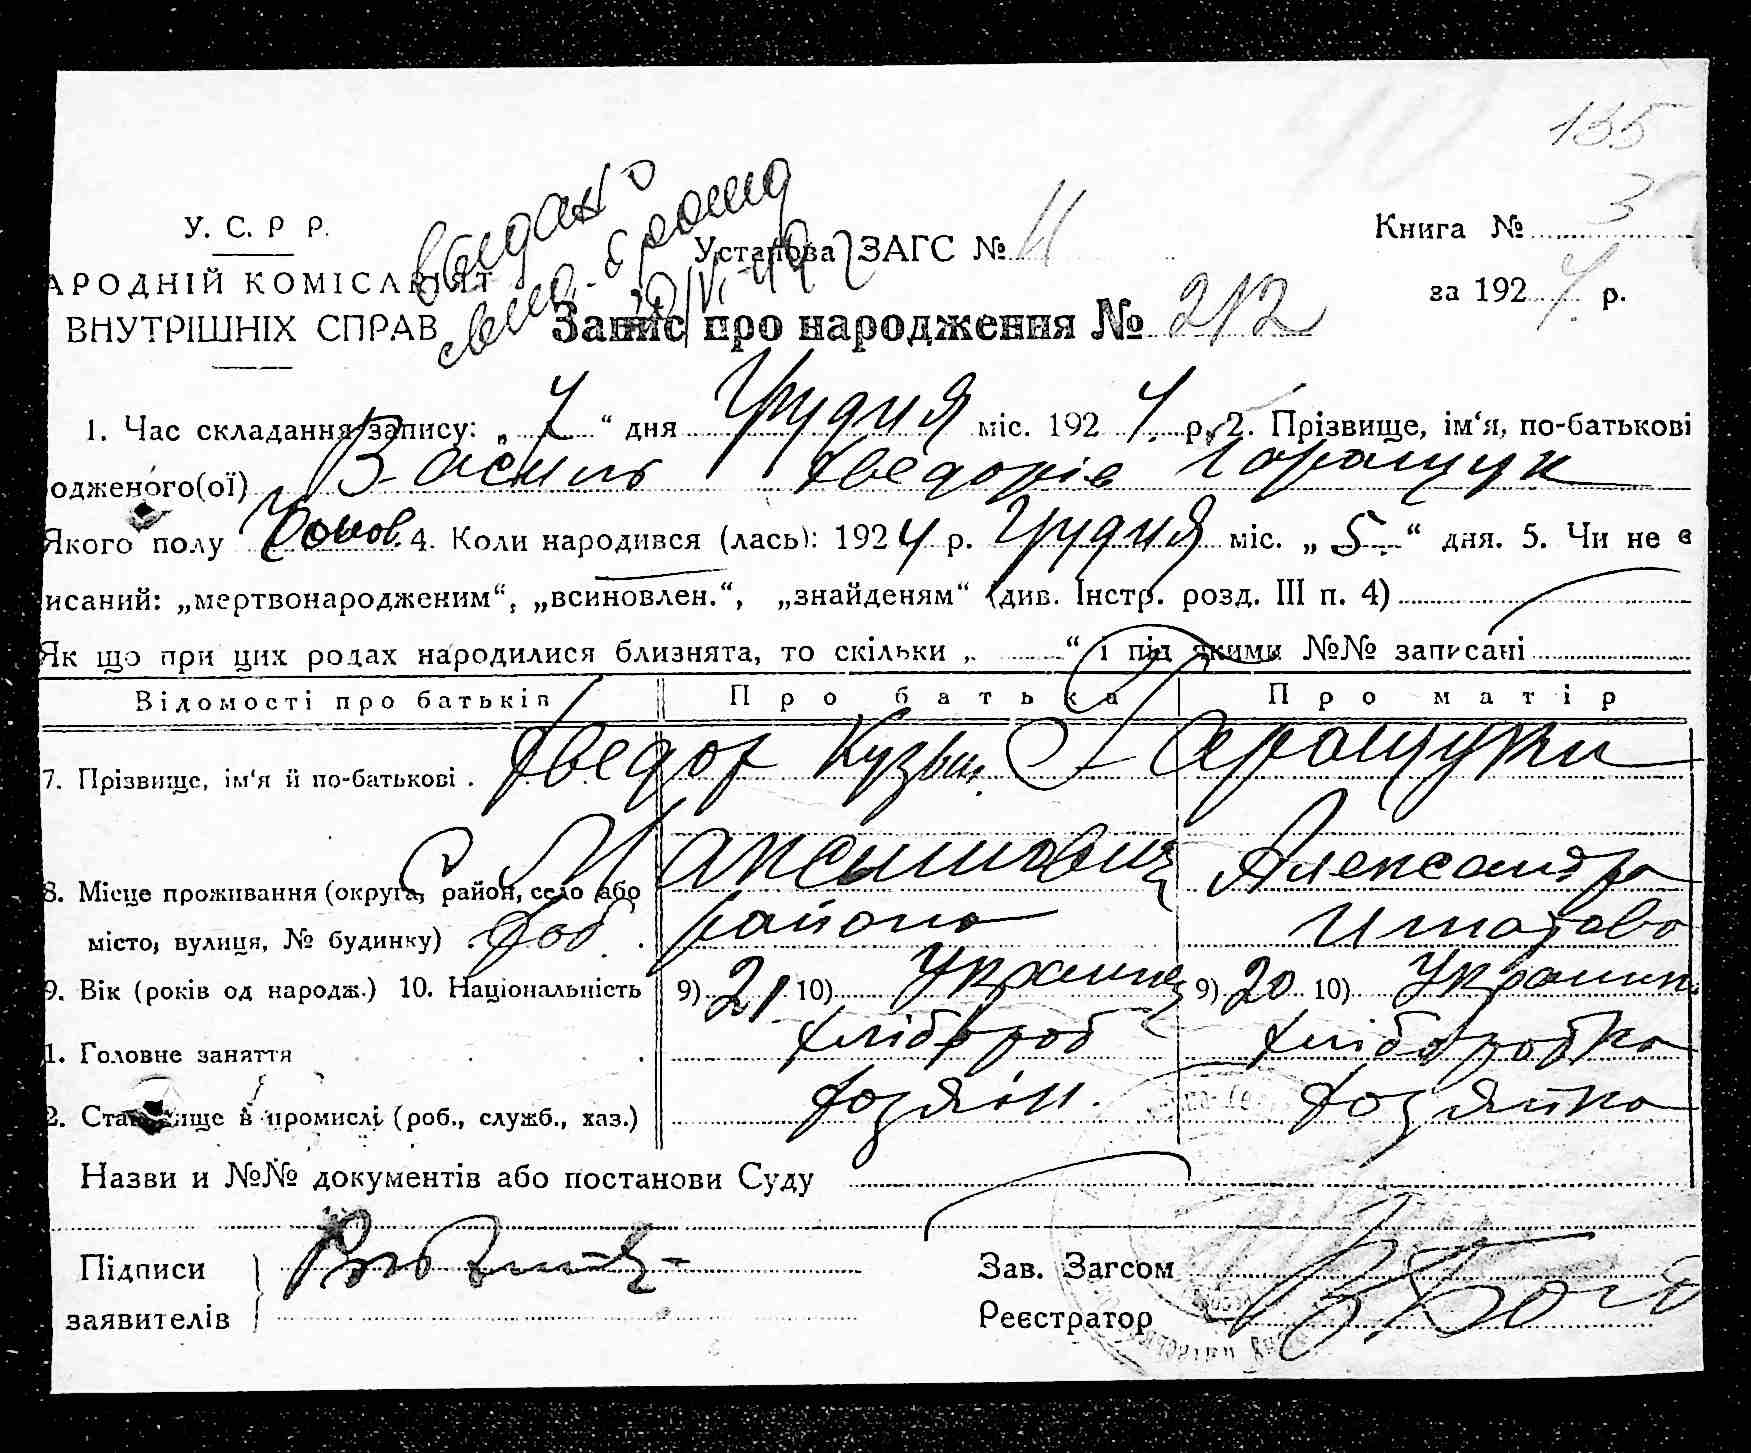 135
У. С. Р Р.
АРОДНІЙ КОМІСАРІЯТ
ВНУТРІШНІХ СПРАВ
видано
Установа ЗАГС № 11
Книга № 3
за 1924 р.
Запис про народження № 212
1. Час складання запису: „ 7 “ дня Грудня міс. 1924 р. 2. Прізвище, ім‘я, по-батькові
одженого(ої) Василь Хведорів Гаращук
Якого полу Чолов. 4. Коли народився (лась): 1924 р. Грудня міс. „ 5. “ дня. 5. Чи не є
исаний: „мертвонародженим“, „всиновлен.“, „знайденям“ (див. Інстр. розд. III п. 4)
Як що при цих родах народилися близнята, то скільки „ “ і під якими №№ записані
Відомості про батьків Про батька Про матір
7. Прізвище, ім‘я й по-батькові . Хведор Кузьм. Гаращуки
8. Місце проживання (округа, район, село або С Максимовка Александра
місто, вулиця, № будинку) району
9. Вік (років од народж.) 10. Національність 9) 21 10) Украинец 9) 20 10) Украинк.
1. Головне заняття хлібороб хліборобка
2. Становище в промислі (роб., служб., хаз.) хозяін. хозяйка
Назви и №№ документів або постанови Суду
Підписи
заявителів
Зав. Загсом
Реєстратор